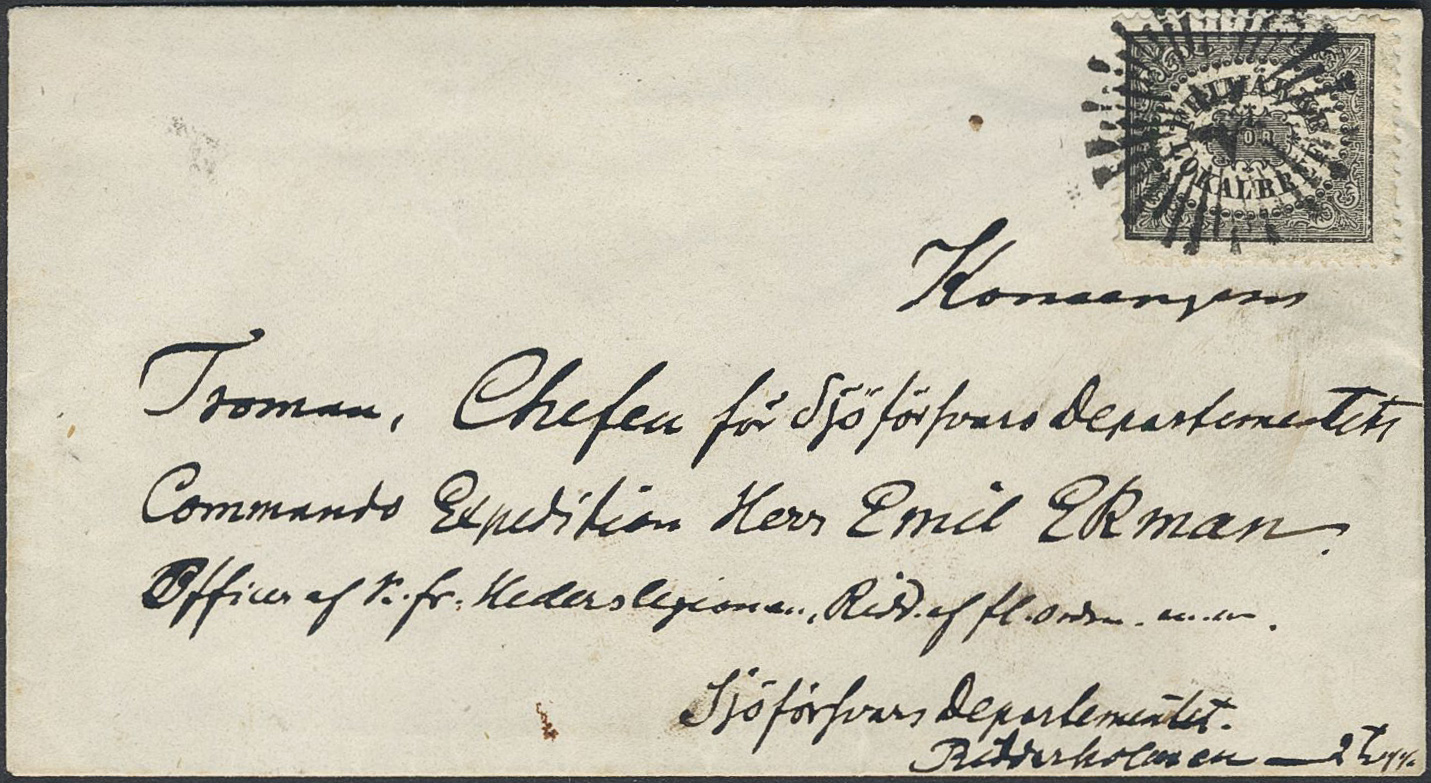 FRIMÄRKE
FÖR
LOKALBREF
Konungens
Troman, Chefen för Sjöförsvars Departementets
Commando Expedition Herr Emil Ekman.
Officer af K. fr. Hederslegionen, Ridd. af fl. ordn. m.m.
Sjöförsvars Departementet.
Ridderholmen